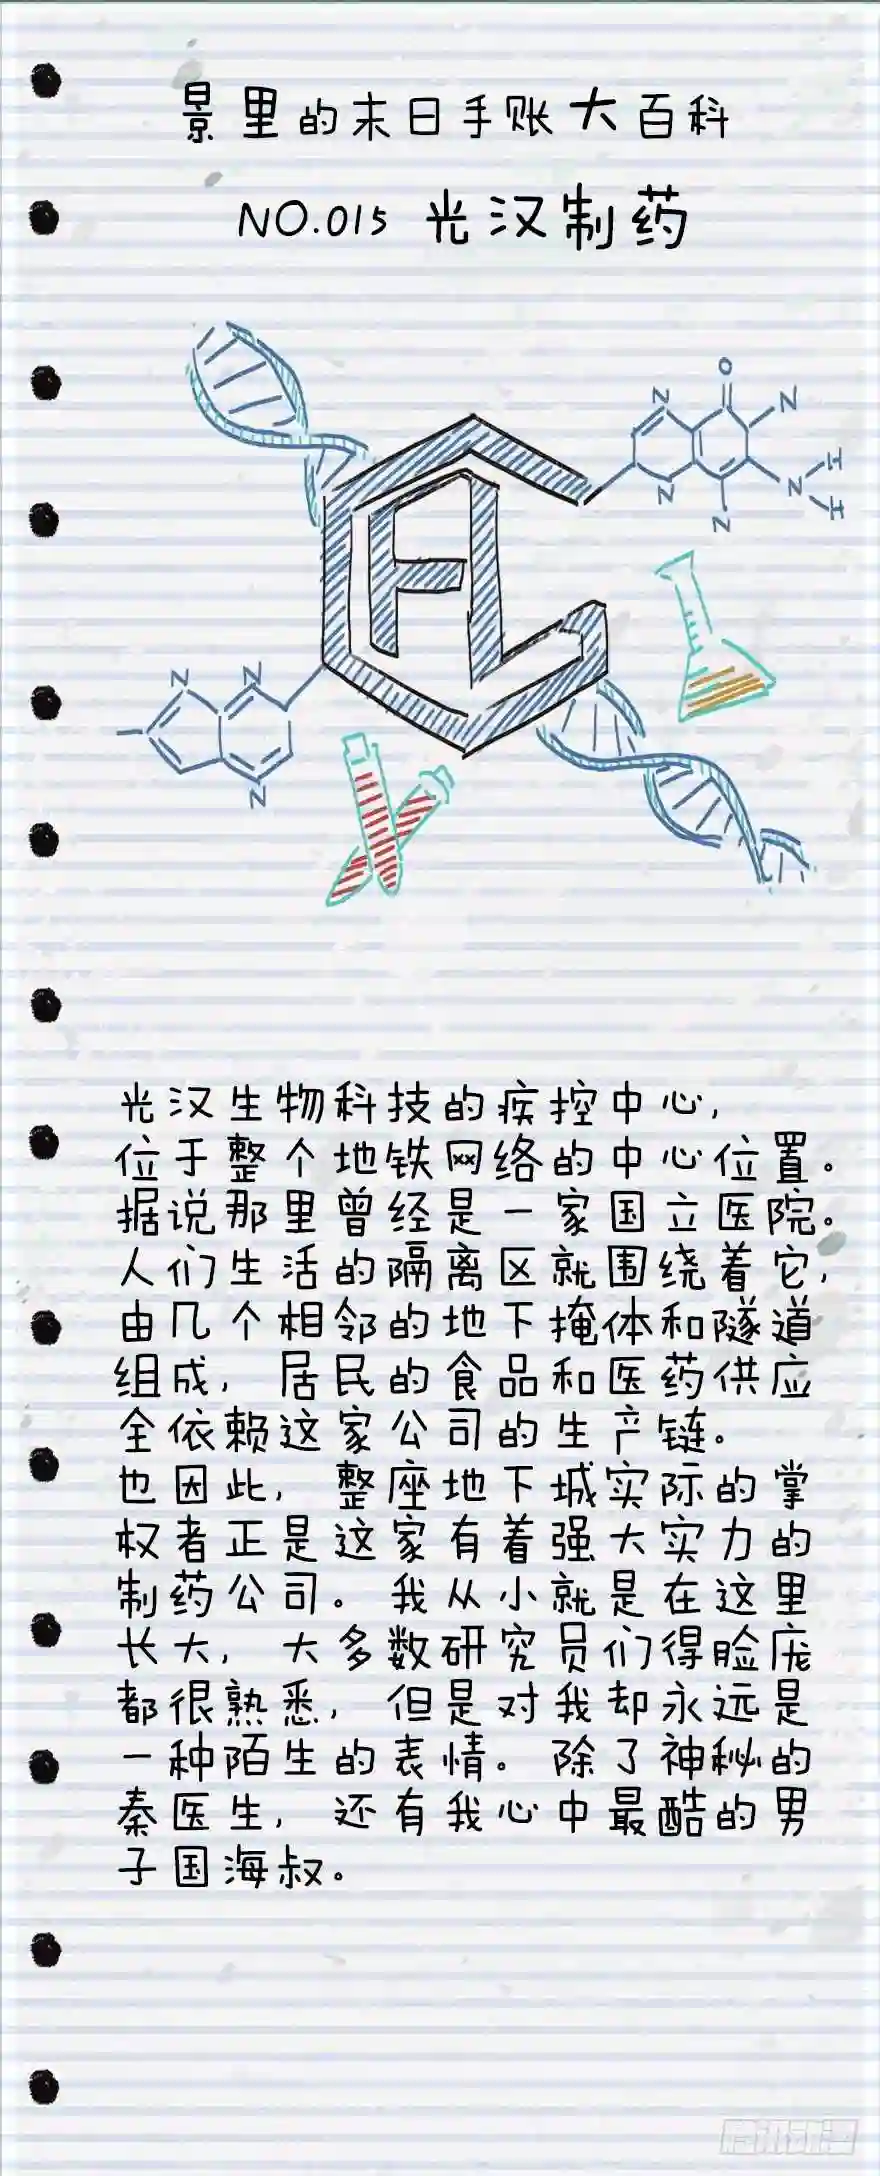 景里的末日手账大百科
NO.015 光汉制药
光汉生物科技的疾控中心，
位于整个地铁网络的中心位置。
据说那里曾经是一家国立医院。
人们生活的隔离区就围绕着它，
由几个相邻的地下掩体和隧道
组成，居民的食品和医药供应
全依赖这家公司的生产链。
也因此，整座地下城实际的掌
权者正是这家有着强大实力的
制药公司。我从小就是在这里
长大，大多数研究员们得脸庞
都很熟悉，但是对我却永远是
一种陌生的表情。除了神秘的
秦医生，还有我心中最酷的男
子国海叔。